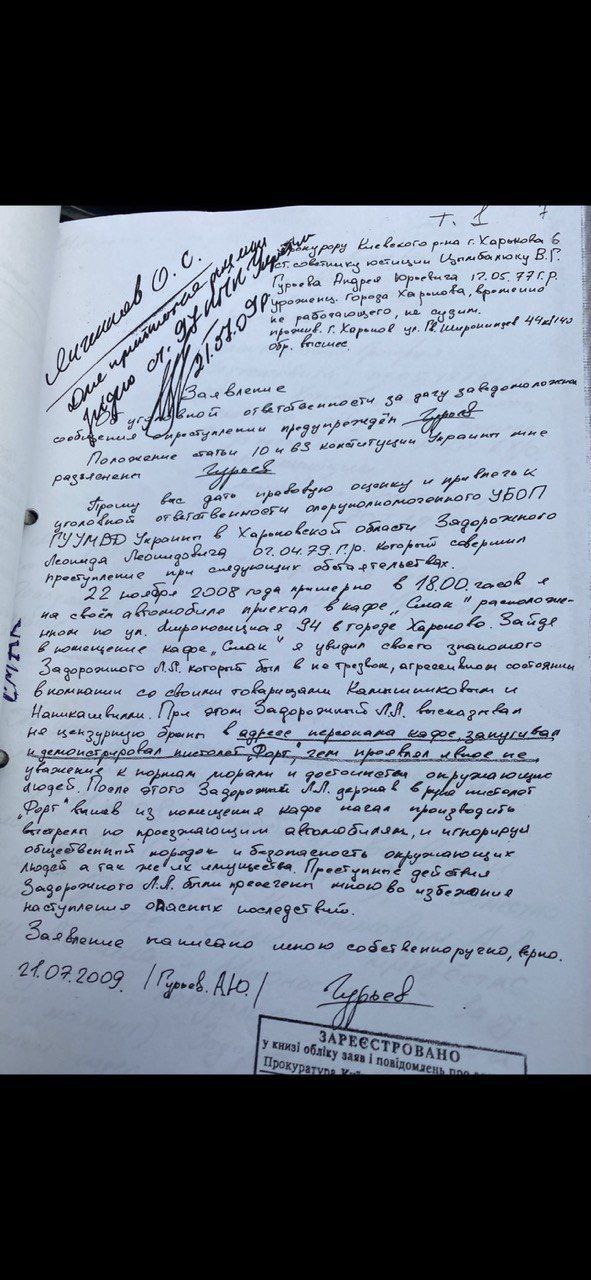 т. 1 7
Прокурору Киевского р-на г. Харькова
ст. советнику юстиции Цымбалюку В.Г.
Гурьева Андрея Юрьевича 17.05.77 г.р.
уроженц. города Харькова, временно
не работающего, не судим.
прожив. г. Харьков ул. Гв. Широнинцев 44 кв 140
обр. высшее
О. С.
Для принятия
ст. 97 КПК України
21.07.09р
Заявление
Об уголовной ответственности за дачу заведомоложн
сообщения о преступлении предупреждён Гурьев
Положение статьи 10 и 63 конституции Украины мне
разъяснены Гурьев
Прошу вас дать правовую оценку и привлечь к
уголовной ответственности оперуполномоченного УБОП
ГУУМВД Украины в Харьковской области Задорожного
Леонида Леонидовича 07.04.79. г.р. который совершил
преступление при следующих обстоятельствах.
22 ноября 2008 года примерно в 18.00. часов я
на своём автомобиле приехал в кафе „Смак" расположе-
нном по ул. Мироносицкая 94 в городе Харьково. Зайдя
в помещение кафе „Смак" я увидил своего знакомого
Задорожного Л.Л. который был в не трезвом, агрессивном состоянии
в компании со своими товарищами Камышниковым и
Наникашвили. При этом Задорожный Л.Л. высказывал
не цензурную брань в адресс персонала кафе, запугивал
и демонстрировал пистолет „Форт", чем проявлял явное не
уважение к нормам морали и достоинства окружающих
людей. После этого Задорожный Л.Л. держав в руке пистолет
„Форт" вышев из помещения кафе начал производить
выстрелы по проезжающим автомобилям, и игнорируя
общественный порядок и безопасность окружающих
людей а так же их имущества. Преступные действия
Задорожного Л.Л. были пресечены мною во избежание
наступления опасных последствий.
Заявление написано мною собственноручно, верно.
21.07.2009. /Гурьев. А.Ю./ Гурьев
ЗАРЕЄСТРОВАНО
у книзі обліку заяв і повідомлень про
Прокуратура